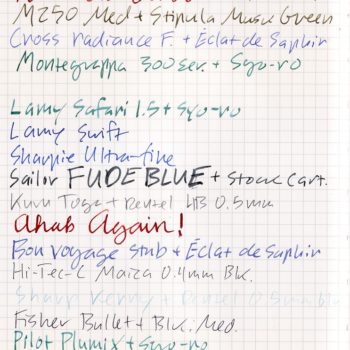 M250 Med + Stipula Musk Green
Cross radiance F. + Éclat de Saphir
Montegrappa 300 Ser. + Syo-ro
Lamy Safari 1.5 + Syo-ro
Lamy Swift
Sharpie Ultra-fine
Sailor FUDE BLUE + Stock Cart.
Kuru Toga + Pentel HB 0.5mm
Ahab Again!
Bon Voyage Stub + Éclat de Saphir
Hi-Tec-C Maica 0.4mm Blk.
Sharp Kerry + Pentel 0.5mm blu
Fisher Bullet + Blk. Med.
Pilot Plumix + Syo-ro